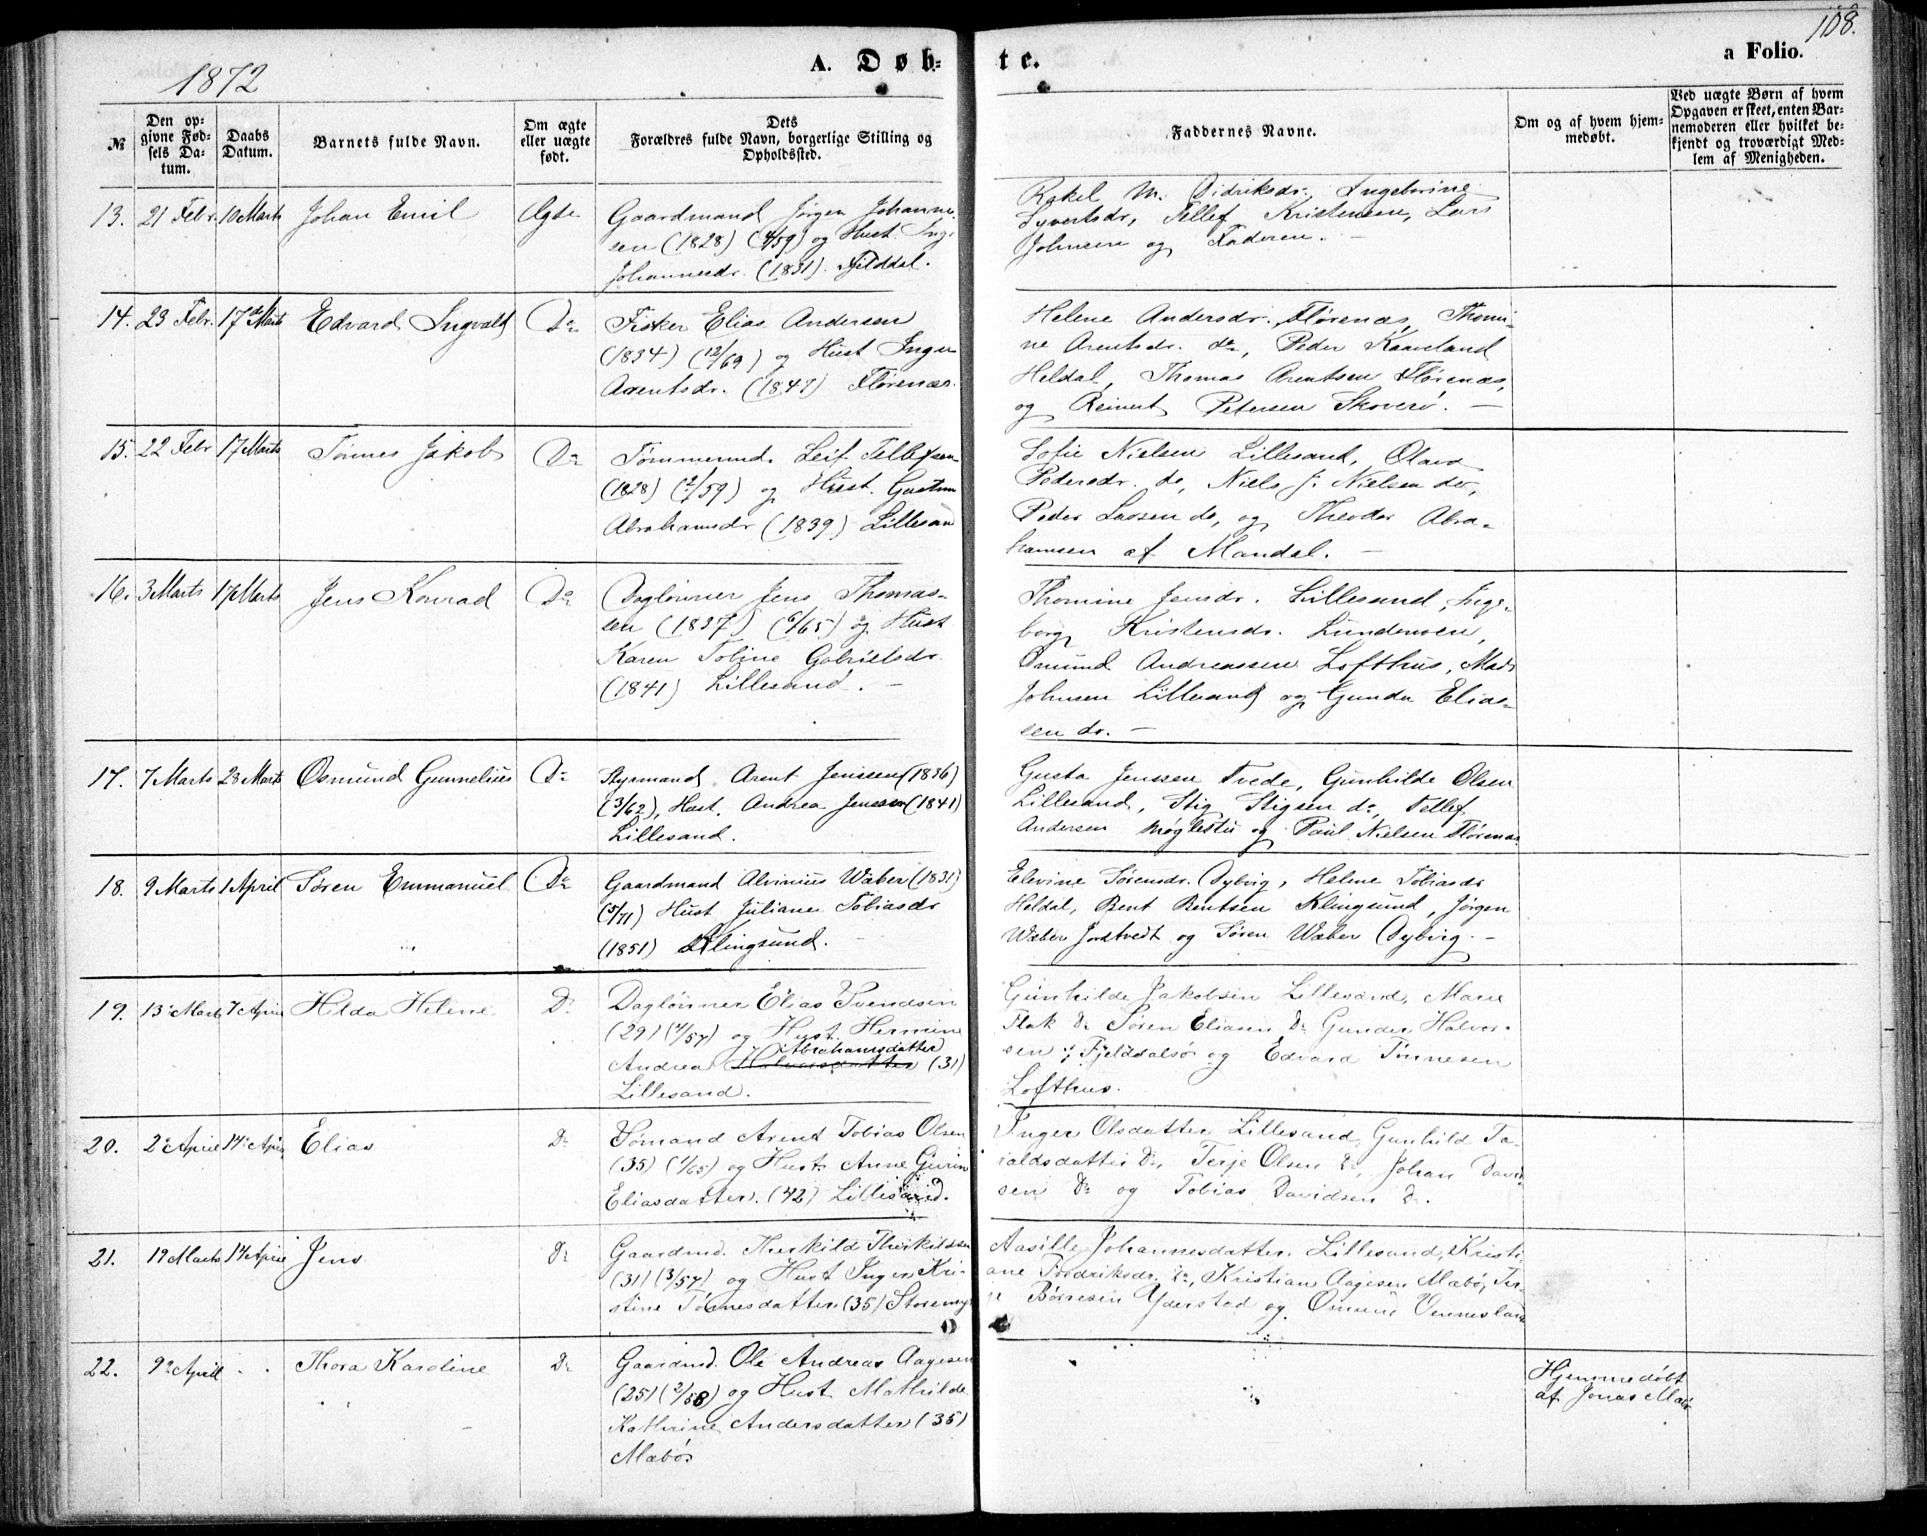 108.
1872
A. Døb-
te.
a Folio.
№
Den op-
givne Fød-
sels Da-
tum.
Daabs
Datum.
Barnets fulde Navn.
Om ægte
eller uægte
født.
Dets
Forældres fulde Navn, borgerlige Stilling og
Opholdssted.
Faddernes Navne.
Om og af hvem hjem-
medøbt.
Ved uægte Børn af hvem
Opgaven er skeet, enten Bar-
nemoderen eller hvilket be-
kjendt og troværdigt Med-
lem af Menigheden.
13. 21 Febr. 10 Marts Johan Emil Ægte
Gaardmand Jørgen Johanne-
sen (1828) (4/59) og Hust. Ing.
Johannesdr. (1831)
Rakel M. Didriksdr., Ingeborine
Syvertsdr, Tellef Kristensen, Lars
Johnsen og Faderen. —
14. 23 Febr. 17de Marts Edvard Ingvald Do
Fisker Elias Andersen
(1834) (12/69) og Hust Inger
Arentsdr. (1847) Florenæs.
Helene Andersdr. Florenæs, Thomi-
ne Arentsdr. do, Peder Kaaveland
Heldal, Thomas Arentsen Florenæs,
og Reinert Petersen Skoverø. —
15. 22 Febr 17 Marts Tønnes Jakob Do
Tømmermd. Leif Tellefsen
(1828) (2/59) og Hust.
Abrahamsdr (1839) Lillesand
Sofie Nielsen Lillesand, Olava
Pedersdr. do, Niels J. Nielsen do,
Peder Larsen do, og Theodor Abra-
hamsen af Mandal. —
16. 3 Marts 17 Marts Jens Konrad Do
Daglønner Jens Thomas-
sen (1837) (6/65) og Hust
Karen Toline Gabrielsdr.
(1841) Lillesand. —
Thomine Jensdr. Lillesand, Inge-
borg Kristensdr.
Osmund Andreassen Lofthus, Mads
Johnsen Lillesand og Gunder Elias-
sen do. —
17. 7 Marts 23 Marts Osmund Gunnelius Do
Styrmand Arent Jenssen (1836)
(3/62), Hust. Andrea Jenssen (1841)
Lillesand.
Gusta Jenssen Tvede, Gunhilde Olsen
Lillesand, Stig Stigsen do, Tellef
Andersen Møglestu og Paul Nielsen Florenæs
18. 9 Marts 1 April Søren Emmanuel Do
Gaardmand Alvinius Wæber (1831)
(5/71) Hust Juliane Tobiasdr
(1851) Klingsund. —
Elevine Sørensdr. Dybvig, Helene Tobiasdr
Heldal, Bent Bentsen Klingsund, Jørgen
Wæber Jordtvedt og Søren Wæber Dybvig. —
19. 13 Marts 7 April Hilda Helene Do
Daglønner Elias Svendsen
(29) (4/57) og Hust. Hermine
Abrahamsdatter
Andrea Halvorsdatter (31)
Lillesand.
Gunhilde Jakobsen Lillesand, Marie
Flak Do Søren Eliasen Do Gunder Halvor-
sen Fjelddalsør og Edvard Tønnesen
Lofthus.
20. 2 April 14 April Elias Do
Sømand Arent Tobias Olsen
(35) (1/65) og Hust Anne Gurine
Eliasdatter. (42) Lillesand.
Inger Olsdatter Lillesand, Gunhild Ta-
raldsdatter Do, Terje Olsen Do, Johan David-
sen Do og Tobias Davidsen Do.
21. 19 Marts 14 April Jens Do
Gaardmd. Therkild Therkildsen
(31) (3/57) og Hust Inger Kri-
stine Tønnesdatter (35) Storemyr
Aasille Johannesdatter Lillesand, Kristi-
ane Fredriksdr. Do, Kristian Aagesen Mæbø, Ter-
je Børresen Yderstad og Omund Venneslan
22. 9 April Thora Karoline Do
Gaardmd. Ole Andreas Aagesen
(25) (2/58) og Hust Mathilde
Kathrine Andersdatter (35)
Mæbø
Hjemmedøbt
af Jonas Mæbø